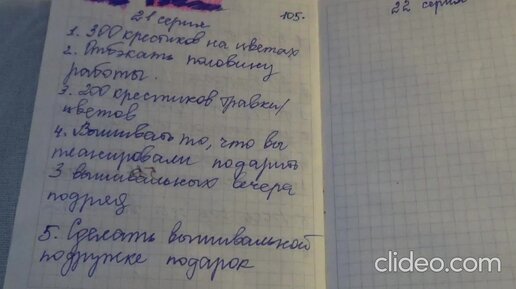 21 серия 105.
1. 300 крестиков на цветах
2. Отбэкать половину
работы.
3. 200 крестиков травки/
цветов
4. Вышивать то, что вы
планировали подарить
3 вышивальных вечера
подряд
5. Сделать вышивальной
подружке подарок
22 серия
clideo.com